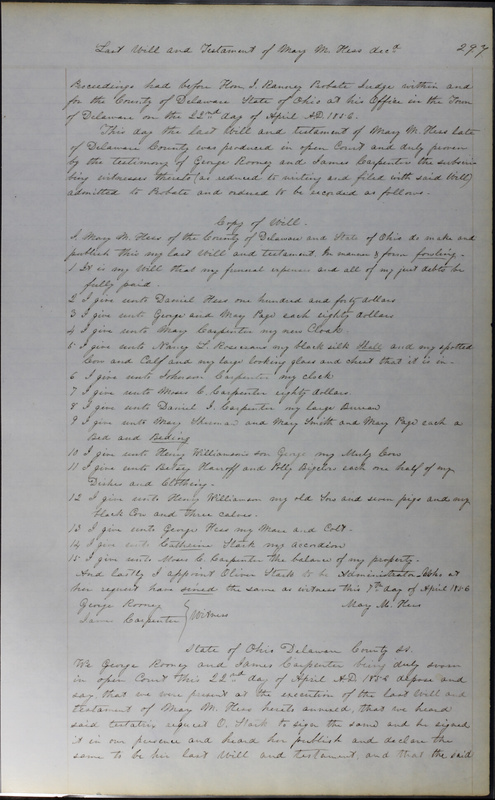 Last Will and Testament of Mary M. Hess decd 297
Proceedings had before Hon. J. Ranney Probate Judge within and
for the County of Delaware State of Ohio at his Office in the Town
of Delaware on the 22nd day of April A.D. 1856.
This day the last Will and testament of Mary M. Hess Late
of Delaware County was produced in open Court and duly proven
by the testimony of George Rooney and James Carpenter the subscri
bing witnesses thereto (as reduced to writing and filed with said Will)
admitted to Probate and ordered to be recorded as follows.
Copy of Will.
I, Mary M. Hess of the County of Delaware and State of Ohio do make and
publish this my last Will and testament. In manner & form fowling.
1 It is my Will that my funeral expenses and all of my just debts be
fully paid.
2 I give unto Daniel Hess one hundred and forty dollars
3 I give unto George and Mary Page each eighty dollars
4 I give unto Mary Carpenter my new Cloak
5 I give unto Nancy L. my black silk and my spotted
Cow and Calf and my large looking glass and chest that it is in.
6 I give unto Johnson Carpenter my clock
7 I give unto Moses C. Carpenter eighty dollars
8 I give unto Daniel J. Carpenter my large Bureau
9 I give unto Mary Sherman and Mary Smith and Mary Page each a
Bed and Beding
10 I give unto Henry Williamson's son George my Muly Cow
11 I give unto Betsey and Polly Bigelow each one half of my
Dishes and Clothing.
12 I give unto Henry Williamson my old Sow and seven pigs and my
black Cow and three calves.
13 I give unto George Hess my Mare and Colt.
14 I give unto Catharine Stark my accordion
15 I give unto Moses C. Carpenter the balance of my property.
And lastly I appoint Oliver Stark to be Administrator Who at
her request have sined the same as witness this 7th day of April 1856
George Rooney Mary M. Hess
James Carpenter } Witness
State of Ohio Delaware County ss.
We George Rooney and James Carpenter being duly sworn
in open Court this 22nd day of April A.D. 1856 depose and
say that we were present at the execution of the last Will and
testament of Mary M. Hess hereto annexed, that we heard
said testatrix request O. Stark to sign the same and he signed
it in our presence and heard her publish and declare the
same to be her last Will and testament, and that the said